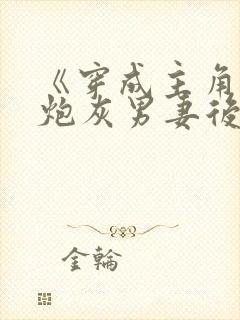 《穿成主角
炮灰男妻後
金輪